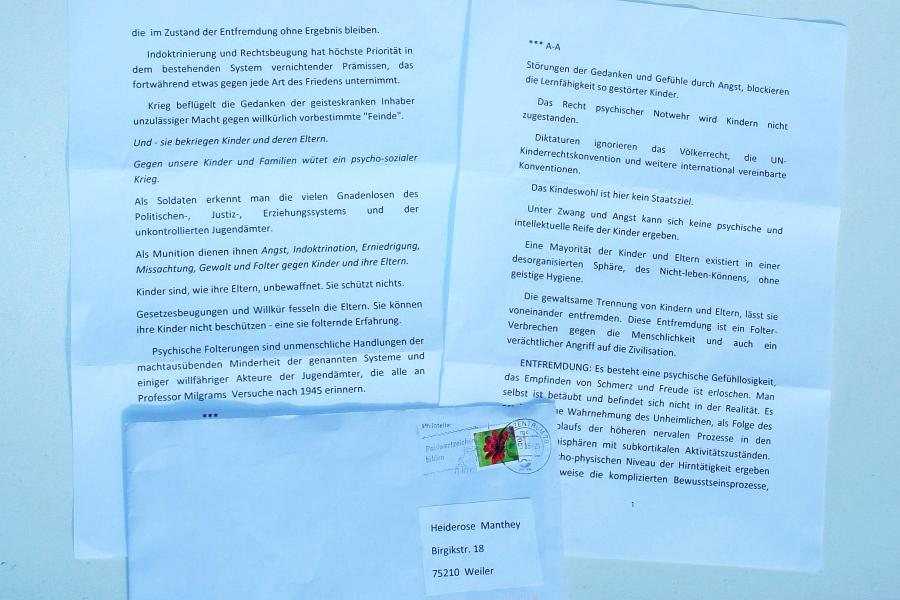 die im Zustand der Entfremdung ohne Ergebnis bleiben.
Indoktrinierung und Rechtsbeugung hat höchste Priorität in
dem bestehenden System vernichtender Prämissen, das
fortwährend etwas gegen jede Art des Friedens unternimmt.
Krieg beflügelt die Gedanken der geisteskranken Inhaber
unzulässiger Macht gegen willkürlich vorbestimmte "Feinde".
Und - sie bekriegen Kinder und deren Eltern.
Gegen unsere Kinder und Familien wütet ein psycho-sozialer
Krieg.
Als Soldaten erkennt man die vielen Gnadenlosen des
Politischen-, Justiz-, Erziehungssystems und der
unkontrollierten Jugendämter.
Als Munition dienen ihnen Angst, Indoktrination, Erniedrigung,
Missachtung, Gewalt und Folter gegen Kinder und ihre Eltern.
Kinder sind, wie ihre Eltern, unbewaffnet. Sie schützt nichts.
Gesetzesbeugungen und Willkür fesseln die Eltern. Sie können
ihre Kinder nicht beschützen - eine sie folternde Erfahrung.
Psychische Folterungen sind unmenschliche Handlungen der
machtausübenden Minderheit der genannten Systeme und
einiger willfähriger Akteure der Jugendämter, die alle an
Professor Milgrams Versuche nach 1945 erinnern.
***
*** A-A
Störungen der Gedanken und Gefühle durch Angst, blockieren
die Lernfähigkeit so gestörter Kinder.
Das Recht psychischer Notwehr wird Kindern nicht
zugestanden.
Diktaturen ignorieren das Völkerrecht, die UN-
Kinderrechtskonvention und weitere international vereinbarte
Konventionen.
Das Kindeswohl ist hier kein Staatsziel.
Unter Zwang und Angst kann sich keine psychische und
intellektuelle Reife der Kinder ergeben.
Eine Mayorität der Kinder und Eltern existiert in einer
desorganisierten Sphäre, des Nicht-leben-Könnens, ohne
geistige Hygiene.
Die gewaltsame Trennung von Kindern und Eltern, lässt sie
voneinander entfremden. Diese Entfremdung ist ein Folter-
Verbrechen gegen die Menschlichkeit und auch ein
verächtlicher Angriff auf die Zivilisation.
ENTFREMDUNG: Es besteht eine psychische Gefühllosigkeit,
das Empfinden von Schmerz und Freude ist erloschen. Man
selbst ist betäubt und befindet sich nicht in der Realität. Es
ne Wahrnehmung des Unheimlichen, als Folge des
blaufs der höheren nervalen Prozesse in den
isphären mit subkortikalen Aktivitätszuständen.
ho-physischen Niveau der Hirntätigkeit ergeben
weise die komplizierten Bewusstseinsprozesse,
1
Philatelie:
Postwertzeichen
bilden
ZENTRUM
Heiderose Manthey
Birgikstr. 18
75210 Weiler